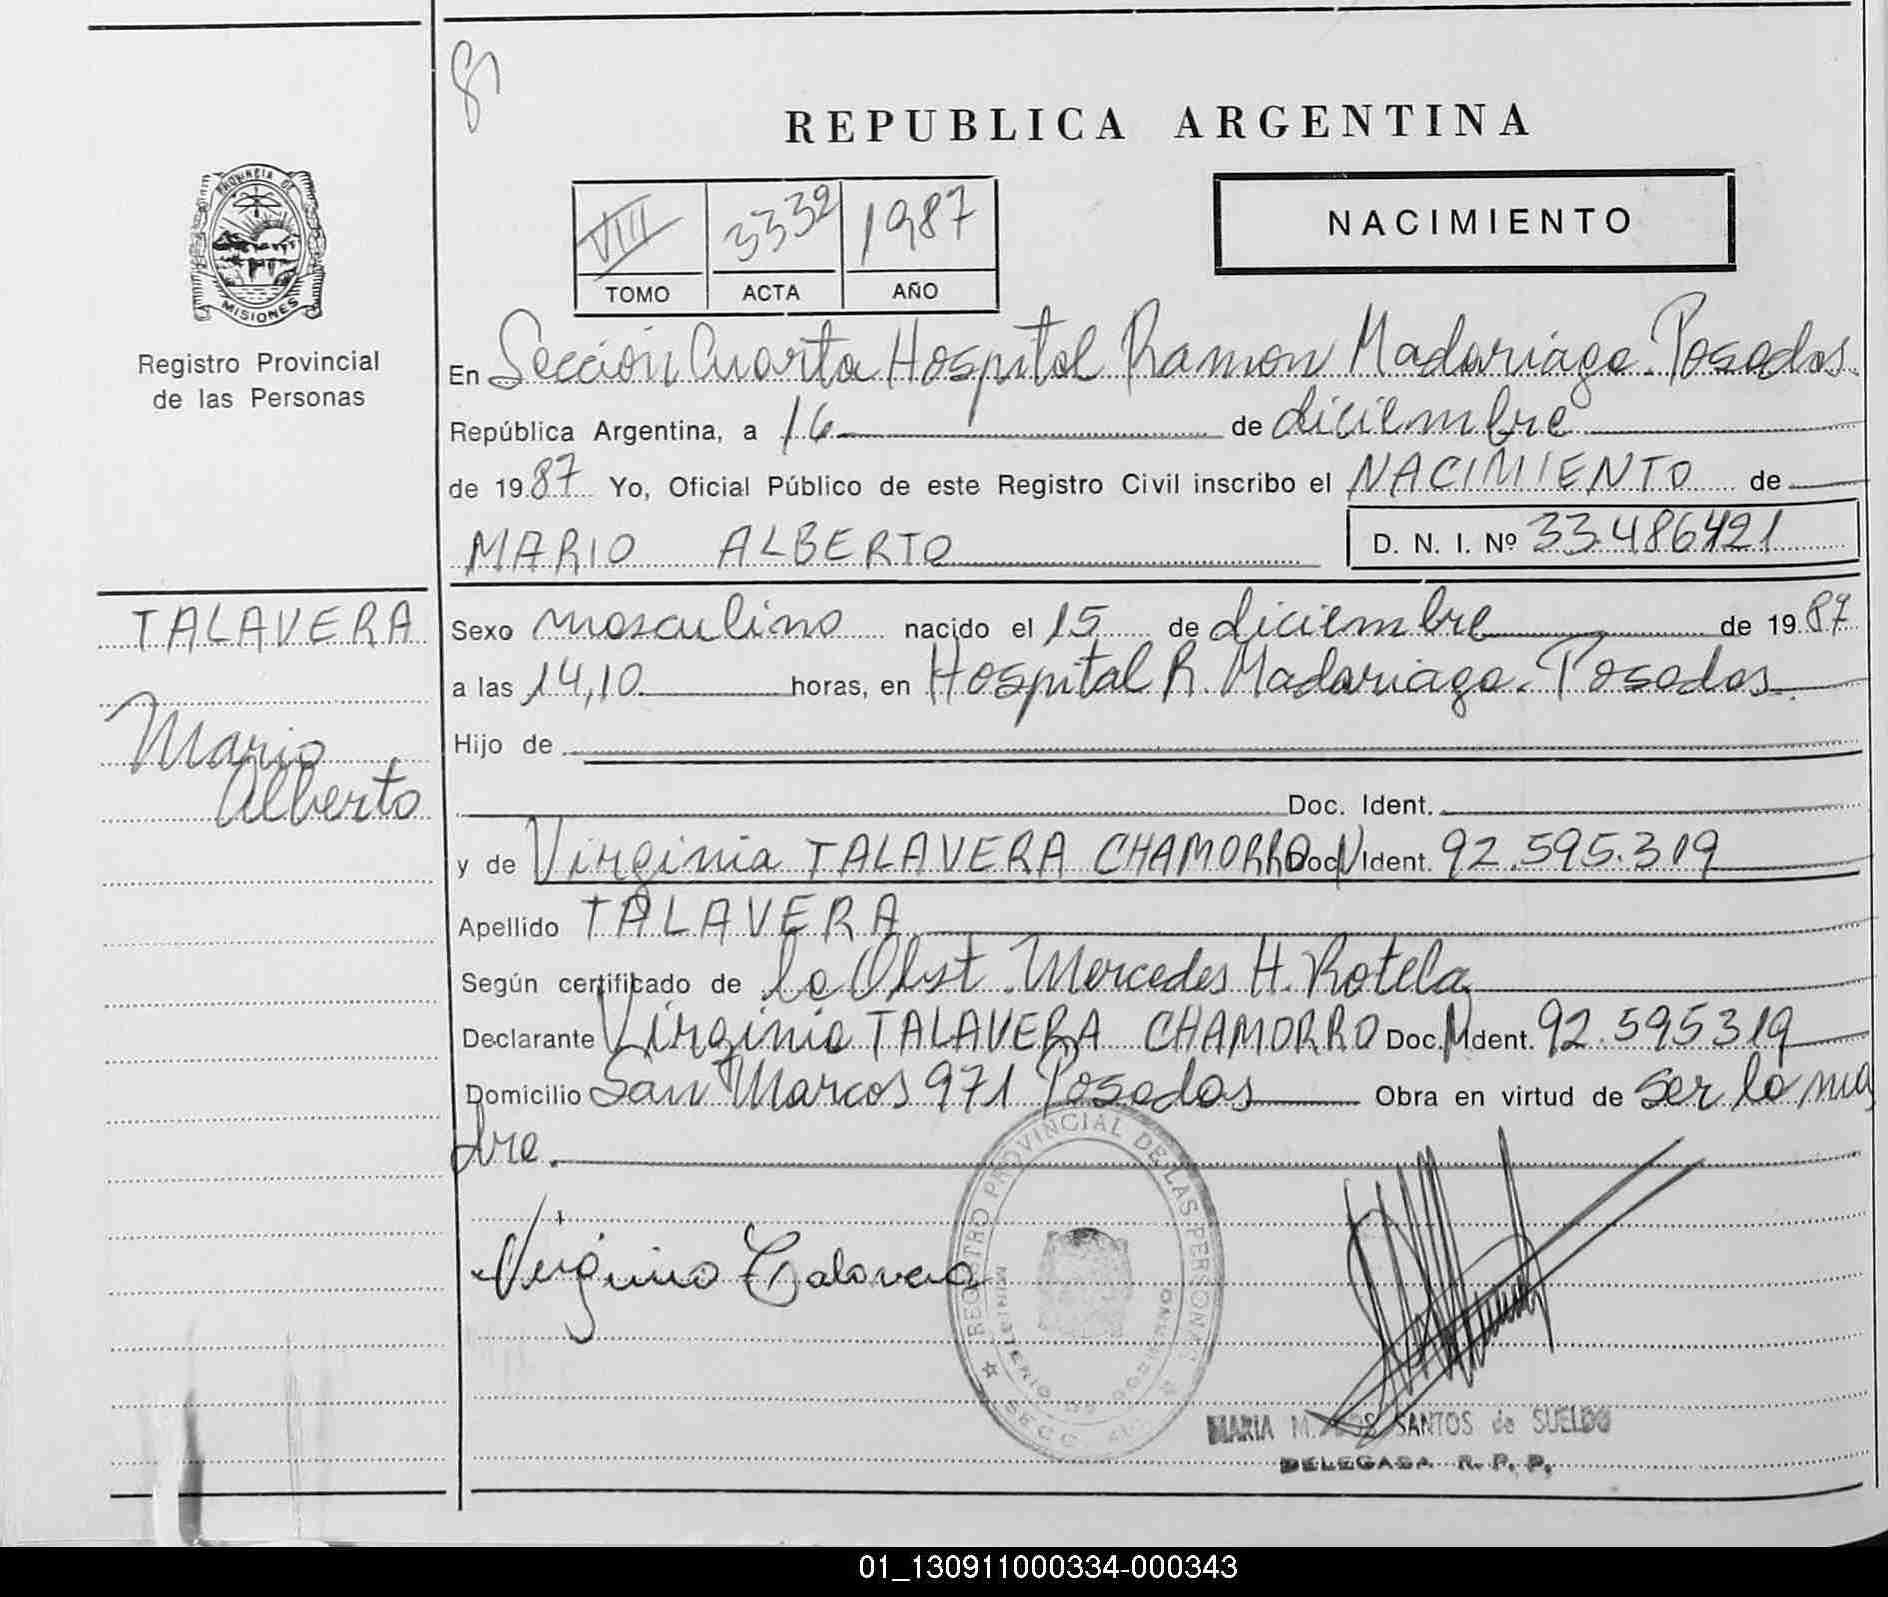 81
REPUBLICA ARGENTINA
PROVINCIA DE
MISIONES
Registro Provincial
de las Personas
VIII 3332 1987
TOMO ACTA AÑO
NACIMIENTO
En Sección Cuarta Hospital Ramon Madariaga. Posadas.
República Argentina, a 16 de diciembre
de 1987 Yo, Oficial Público de este Registro Civil inscribo el NACIMIENTO de
MARIO ALBERTO D. N. I. Nº 33.486421
TALAVERA
Mario
Alberto
Sexo masculino nacido el 15 de diciembre de 1987
a las 14,10 horas, en Hospital R. Madariaga. Posadas.
Hijo de
Doc. Ident.
y de Virginia TALAVERA CHAMORRO Doc. Ident. 92.595.319
Apellido TALAVERA
Según certificado de la Obst. Mercedes H. Rotela
Declarante Virginia TALAVERA CHAMORRO Doc. Ident. 92.595319
Domicilio San Marcos 971 Posadas Obra en virtud de ser la ma
dre.
Virginia Talavera
REGISTRO PROVINCIAL DE LAS PERSONAS
MINISTERIO DE GOBIERNO
SECC.
MARIA M. DOS SANTOS de SUELDO
DELEGADA R. P. P.
01_130911000334-000343